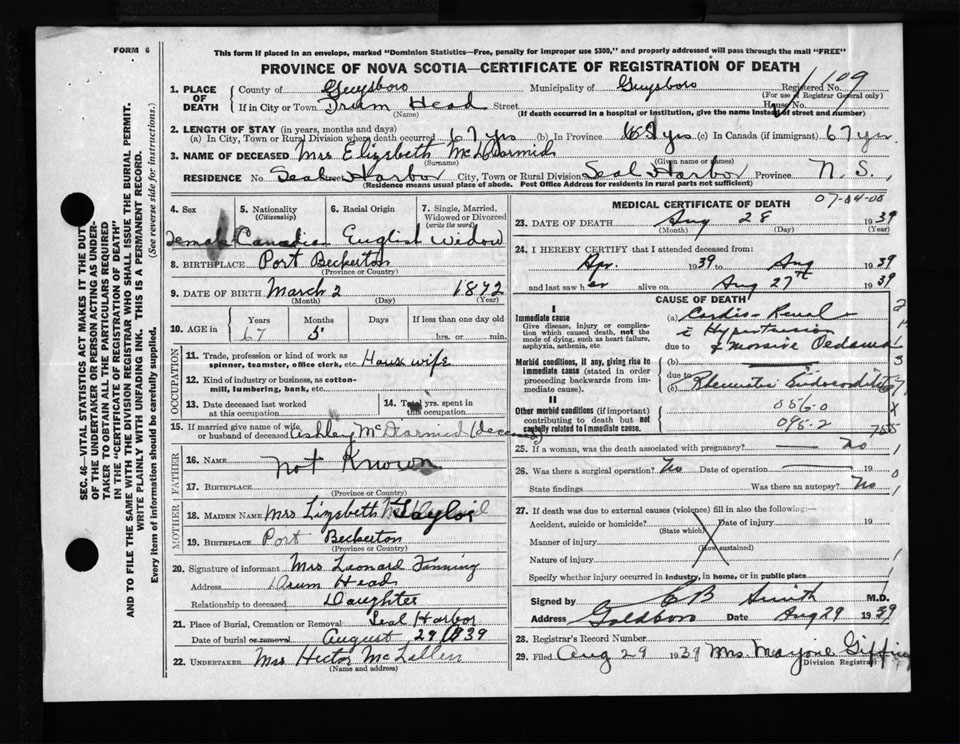 FORM 6
This form if placed in an envelope, marked "Dominion Statistics—Free, penalty for improper use $300," and properly addressed will pass through the mail "FREE"
PROVINCE OF NOVA SCOTIA—CERTIFICATE OF REGISTRATION OF DEATH
SEC. 46—VITAL STATISTICS ACT MAKES IT THE DUTY
OF THE UNDERTAKER OR PERSON ACTING AS UNDER-
TAKER TO OBTAIN ALL THE PARTICULARS REQUIRED
IN THE "CERTIFICATE OF REGISTRATION OF DEATH"
AND TO FILE THE SAME WITH THE DIVISION REGISTRAR WHO SHALL ISSUE THE BURIAL PERMIT.
WRITE PLAINLY WITH UNFADING INK. THIS IS A PERMANENT RECORD.
Every item of information should be carefully supplied. (See reverse side for instructions.)
1. PLACE OF DEATH County of Guysboro Municipality of Guysboro Registered No. 109
(For use of Registrar General only)
If in City or Town Drum Head Street House No.
(Name) (If death occurred in a hospital or institution, give the name instead of street and number)
2. LENGTH OF STAY (in years, months and days)
(a) In City, Town or Rural Division where death occurred 67 yrs (b) In Province 67 yrs (c) In Canada (if immigrant) 67 yrs
3. NAME OF DECEASED Mrs Elizabeth McDiarmid
(Surname) (Given name or names)
RESIDENCE No. Seal Harbor Street City, Town or Rural Division Seal Harbor Province N. S.
(Residence means usual place of abode. Post Office Address for residents in rural parts not sufficient)
4. Sex 5. Nationality (Citizenship) 6. Racial Origin 7. Single, Married, Widowed or Divorced (write the word)
Female Canadian English Widow
8. BIRTHPLACE Port Beckerton
(Province or Country)
9. DATE OF BIRTH March 2 1872
(Month) (Day) (Year)
10. AGE in Years Months Days If less than one day old
67 5 hrs. or min.
OCCUPATION
11. Trade, profession or kind of work as spinner, teamster, office clerk, etc. House wife
12. Kind of industry or business, as cotton-mill, lumbering, bank, etc.
13. Date deceased last worked at this occupation
14. Total yrs. spent in this occupation
15. If married give name of wife or husband of deceased Ashley McDiarmid (deceased)
FATHER
16. NAME not Known
17. BIRTHPLACE
(Province or Country)
MOTHER
18. MAIDEN NAME Mrs. Lizsbeth Taylor
19. BIRTHPLACE Port Beckerton
(Province or Country)
20. Signature of informant Mrs Leonard Fanning
Address Drum Head
Relationship to deceased Daughter
21. Place of Burial, Cremation or Removal Seal Harbor
Date of burial or removal August 29 1939
22. UNDERTAKER Mrs Hector McLellen
(Name and address)
MEDICAL CERTIFICATE OF DEATH
07-04-00
23. DATE OF DEATH Aug 28 1939
(Month) (Day) (Year)
24. I HEREBY CERTIFY that I attended deceased from:
Apr. 1939 to Aug 1939
and last saw her alive on Aug 27th 1939
CAUSE OF DEATH
I
Immediate cause (a) Cardio Renal
Give disease, injury or complication which caused death, not the mode of dying, such as heart failure, asphyxia, asthenia, etc.
c Hypertension
due to & massive Oedema
Morbid conditions, if any, giving rise to immediate cause (stated in order proceeding backwards from immediate cause). (b)
due to
(c) Rheumatic Endocarditis
II
Other morbid conditions (if important) contributing to death but not causally related to immediate cause.
056-0
095-2
25. If a woman, was the death associated with pregnancy? no
26. Was there a surgical operation? No Date of operation 19
State findings Was there an autopsy? No
27. If death was due to external causes (violence) fill in also the following:—
Accident, suicide or homicide? Date of injury 19
(State which)
Manner of injury
(How sustained)
Nature of injury
Specify whether injury occurred in industry, in home, or in public place
Signed by C B Smith M.D.
Address Goldboro Date Aug 29 1939
28. Registrar's Record Number
29. Filed Aug 29 1939 Mrs. Marjorie Giffin
Division Registrar